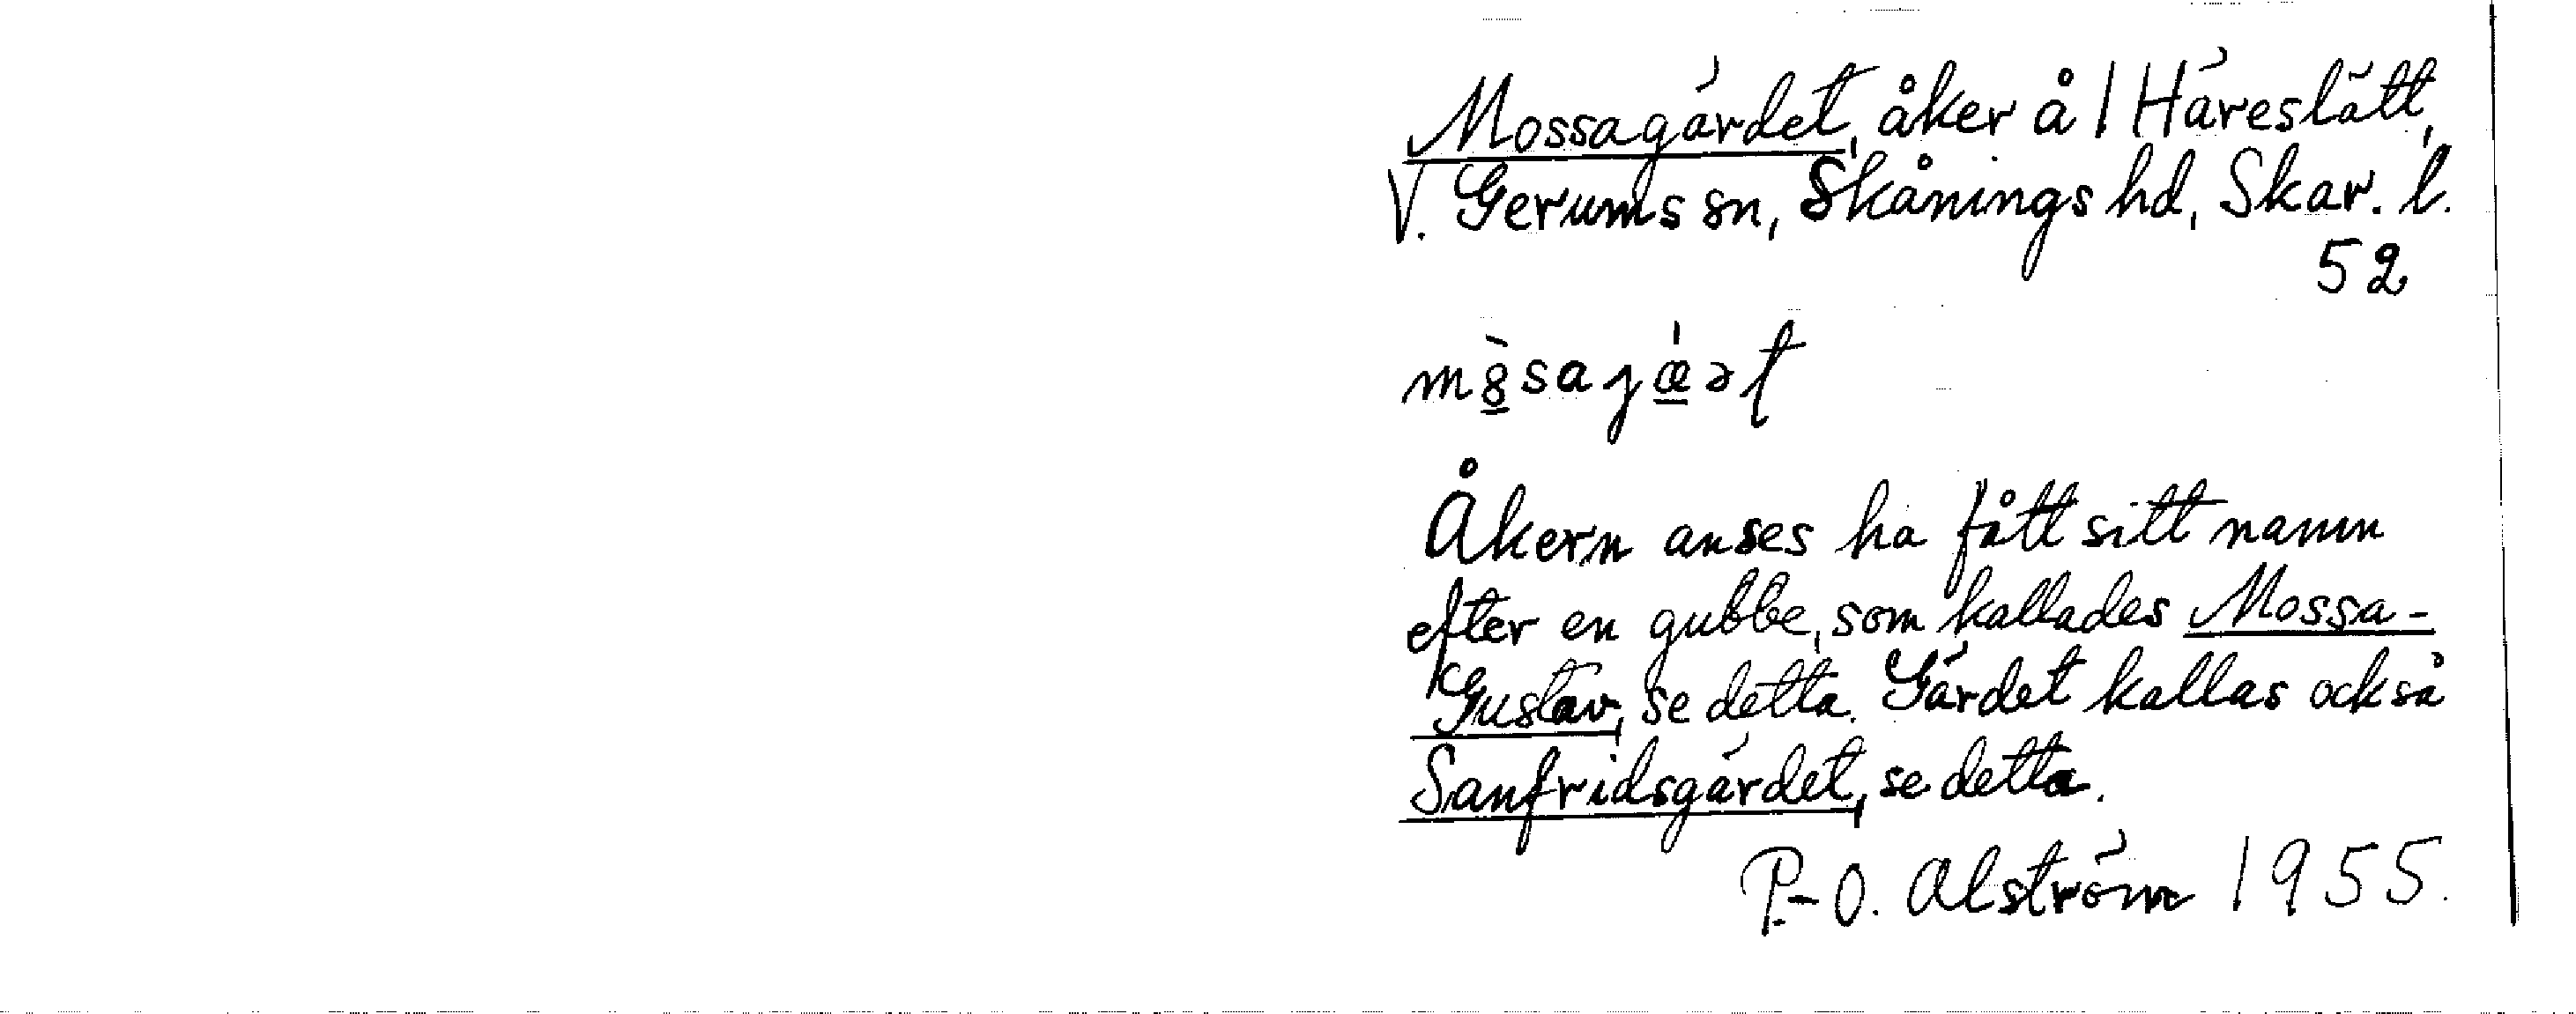 Mossagärdet, åker å 1 Häreslätt,
V. Gerums sn, Skånings hd, Skar. l.
52
Åkern anses ha fått sitt namn
efter en gubbe, som kallades Mossa-
Gustav, se detta. Gärdet kallas också
Sanfridsgärdet, se detta.
P.-O. Alström 1955.